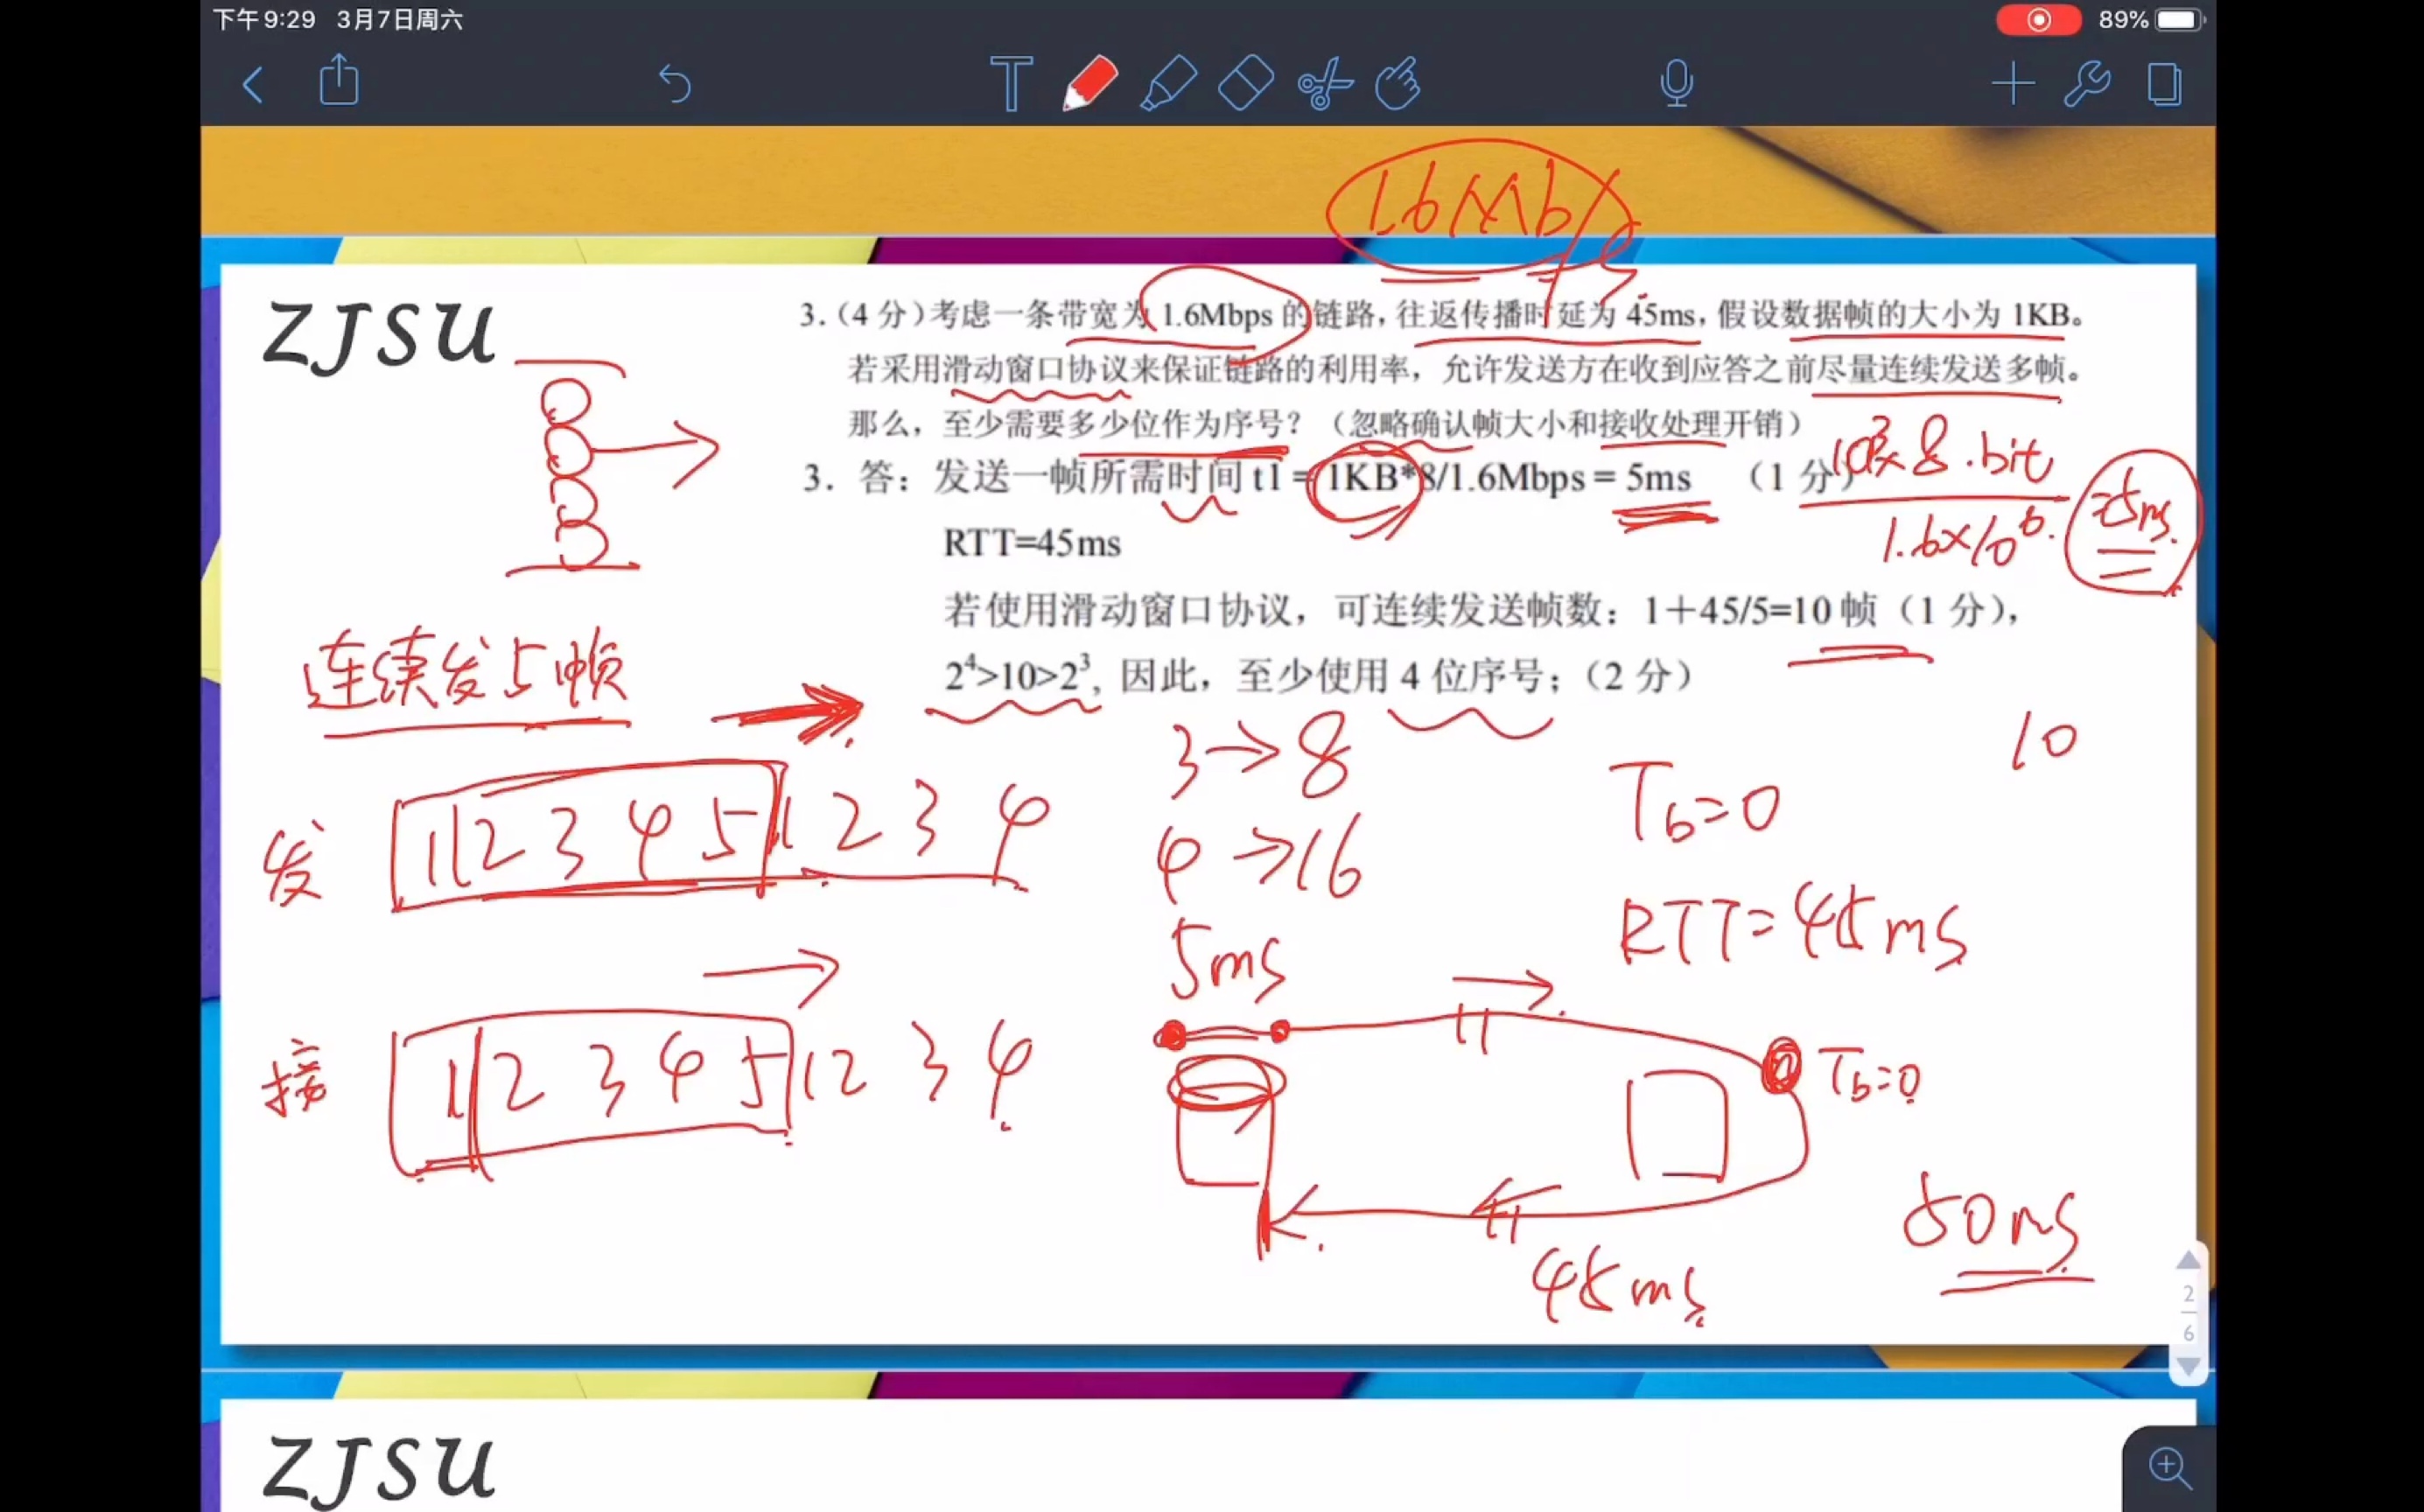 下午9:29 3月7日周六
89%
1.6Mb/s
ZJSU
3.（4 分）考虑一条带宽为 1.6Mbps 的链路，往返传播时延为 45ms，假设数据帧的大小为 1KB。
若采用滑动窗口协议来保证链路的利用率，允许发送方在收到应答之前尽量连续发送多帧。
那么，至少需要多少位作为序号？（忽略确认帧大小和接收处理开销）
3. 答：发送一帧所需时间 t1 = 1KB*8/1.6Mbps = 5ms （1 分）
10³×8.bit
1.6×10⁶.
=5ms.
RTT=45ms
若使用滑动窗口协议，可连续发送帧数：1＋45/5=10 帧（1 分），
2⁴>10>2³, 因此，至少使用 4 位序号；（2 分）
连续发5帧
3→8
10
发 1 2 3 4 5 1 2 3 4
4→16
Tb=0
RTT=45ms
5ms
接 1 2 3 4 5 1 2 3 4
Tb=0
50ms
45ms
2
6
ZJSU